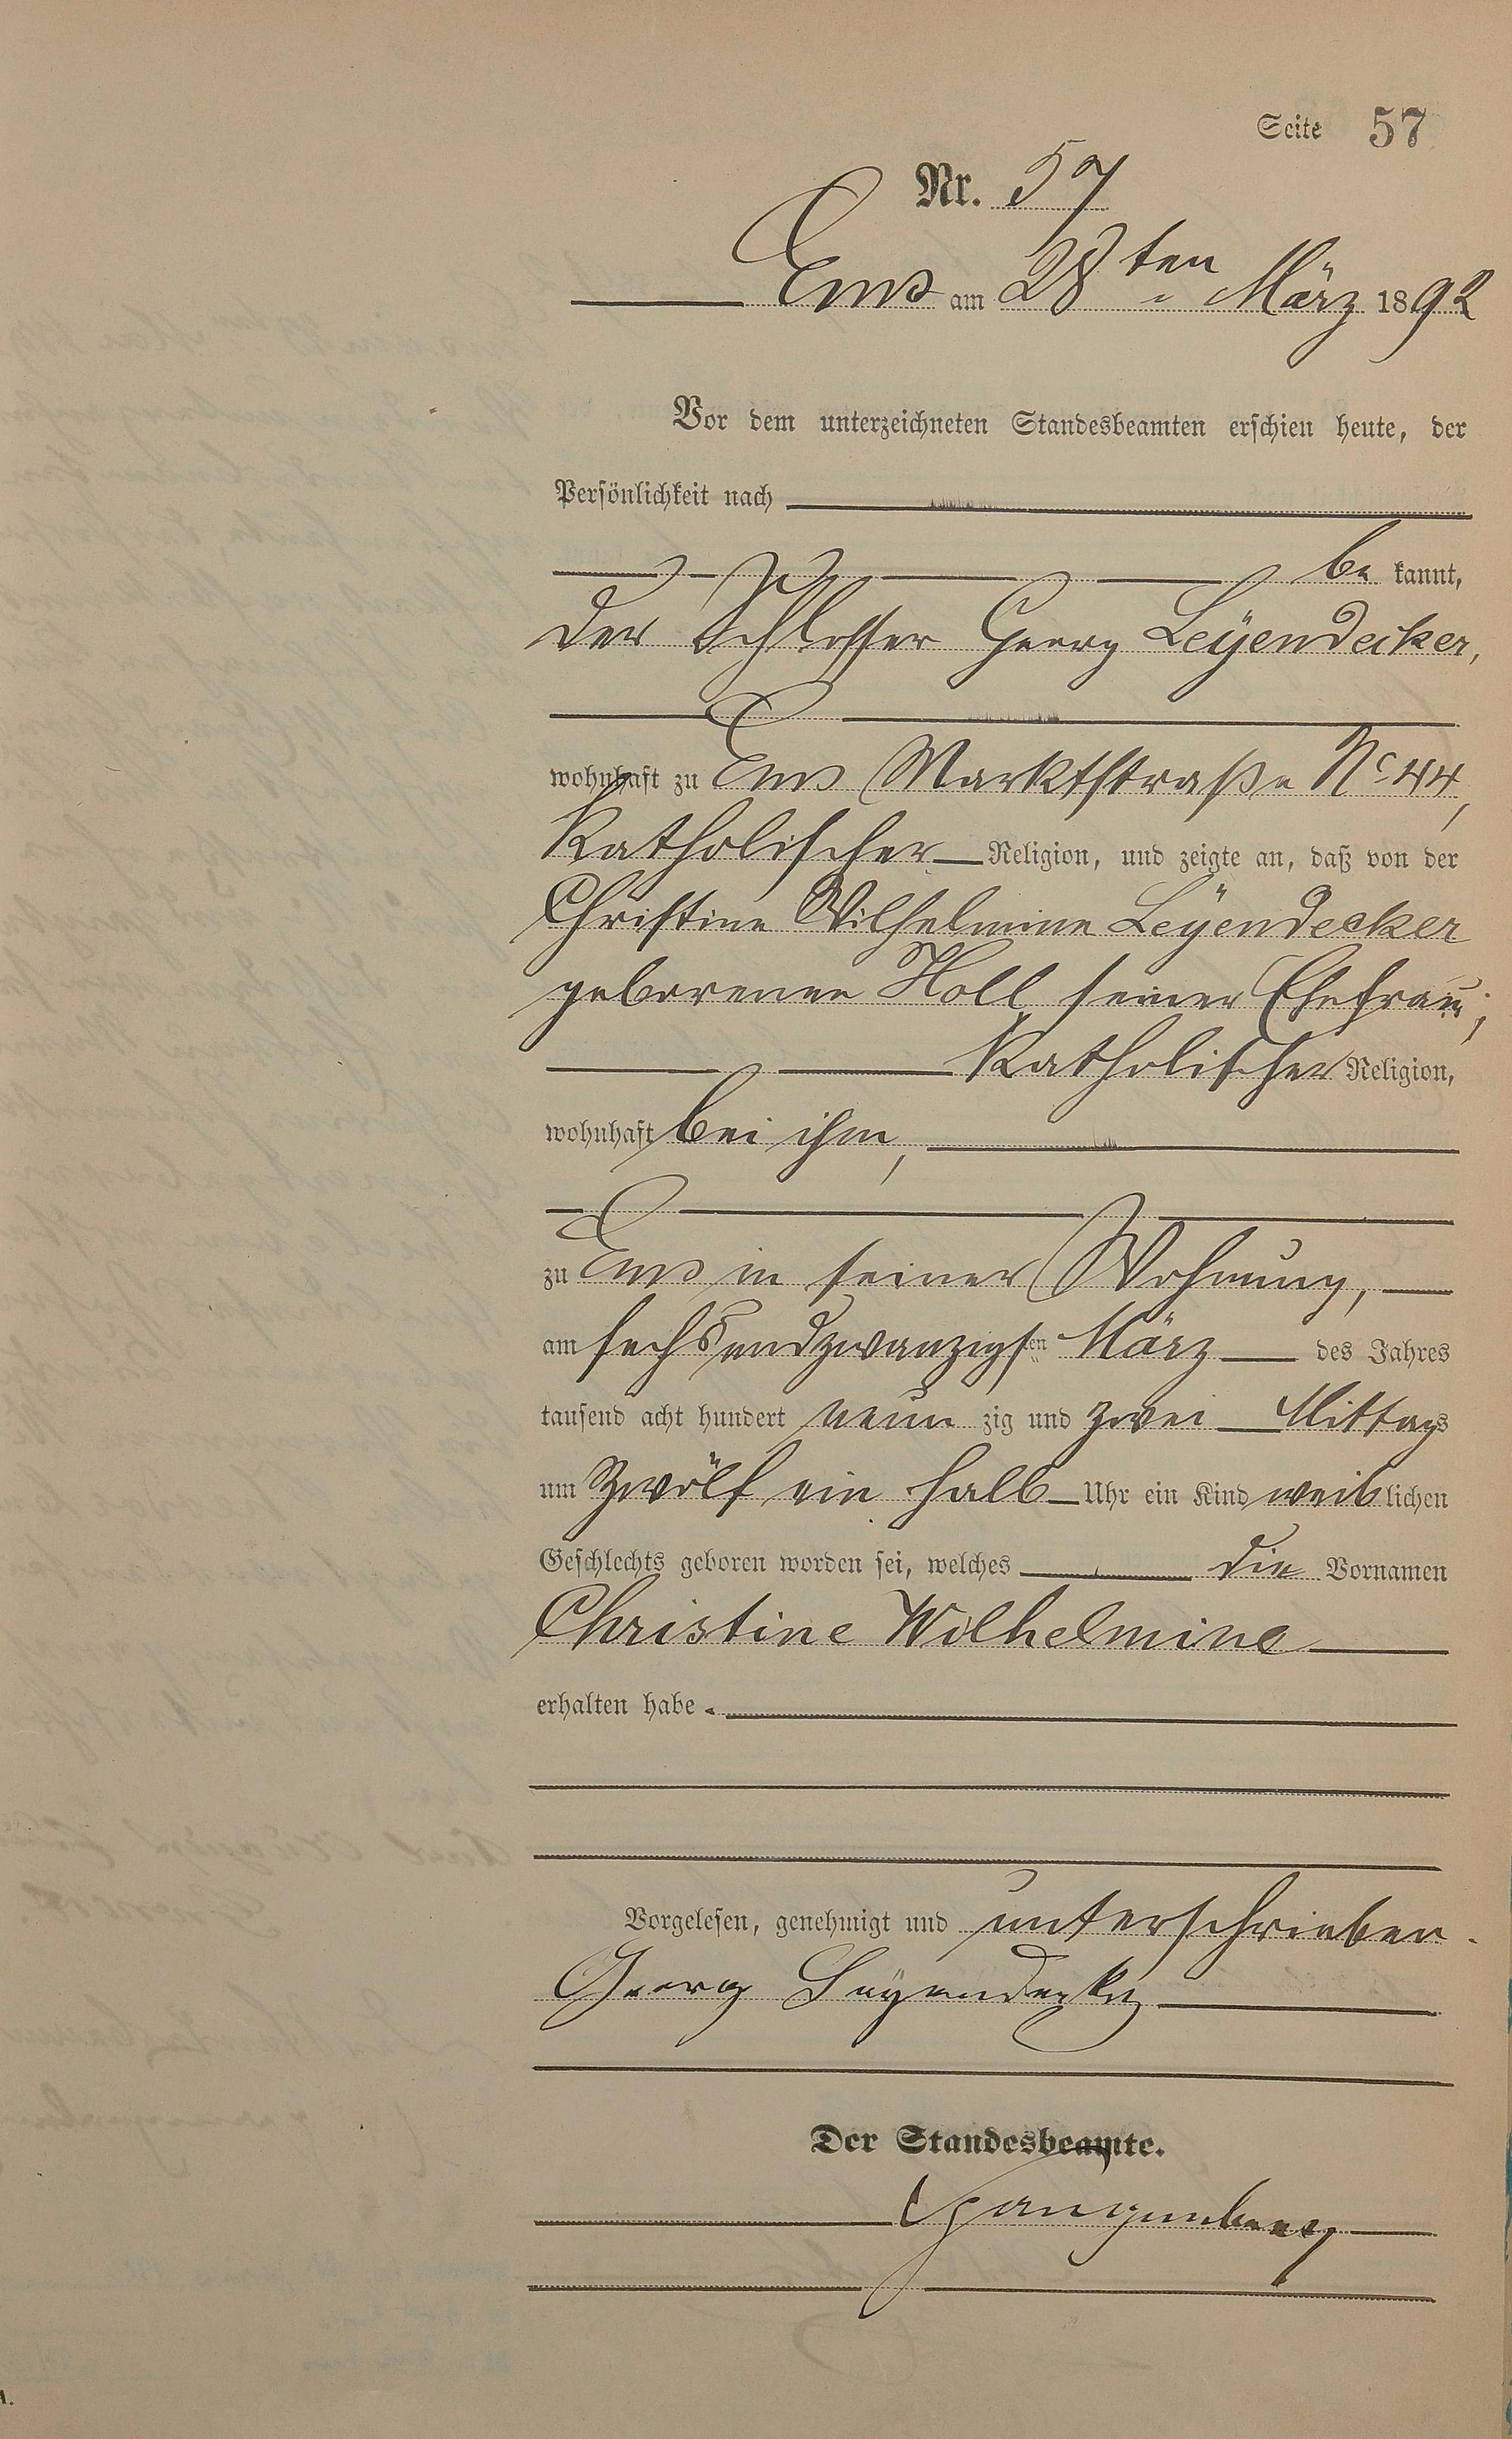 Seite 57
Nr. 57
Ems am 28ten März 1892
Vor dem unterzeichneten Standesbeamten erschien heute, der
Persönlichkeit nach
be kannt,
der Schlosser Georg Leÿendecker,
wohnhaft zu Ems Marktstraße No 44,
Katholischer Religion, und zeigte an, daß von der
Christine Wilhelmine Leÿendecker
geborenen Noll, seiner Ehefrau;
Katholischer Religion,
wohnhaft bei ihm,
zu Ems in seiner Wohnung,
am sechsundzwanzigsten März des Jahres
tausend acht hundert neun zig und zwei Mittags
um zwölf ein halb Uhr ein Kind weib lichen
Geschlechts geboren worden sei, welches die Vornamen
Christine Wilhelmine
erhalten habe.
Vorgelesen, genehmigt und unterschrieben.
Georg Leÿendecker
Der Standesbeamte.